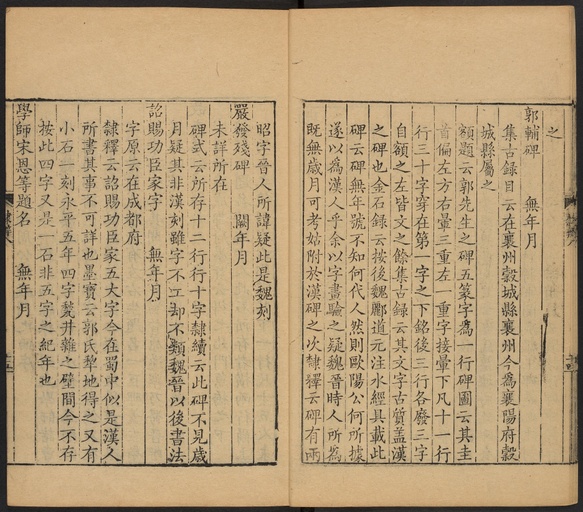 之
郭輔碑　　無年月
集古錄目云在襄州穀城縣襄州今為襄陽府穀
城縣屬之
額題云郭先生之碑五篆字為一行碑圖云其圭
首偏左方右暈三重左一重字接暈下凡十一行
行三十字穿在第一字之下銘後三行各廢三字
自額之左皆文之餘集古錄云其文字古質蓋漢
之碑也金石錄云按後魏酈道元注水經具載此
碑云碑無年號不知何代人然則歐陽公何所據
遂以為漢人乎余以字畫驗之疑魏晉時人所為
既無歲月可考姑附於漢碑之次隸釋云碑有兩
昭字晉人所諱疑此是魏刻
嚴發殘碑　　闕年月
未詳所在
碑式云所存十二行行十字隸續云此碑不見歲
月疑其非漢刻雖字不工却不類魏晉以後書法
詔賜功臣家字　　無年月
字原云在成都府
隸釋云詔賜功臣家五大字今在蜀中似是漢人
所書其事不可詳也墨寶云郭氏犂地得之又有
小石一刻永平五年四字甃井雜之壁間今不存
按此四字又是一石非五字之紀年也
學師宋恩等題名　　無年月